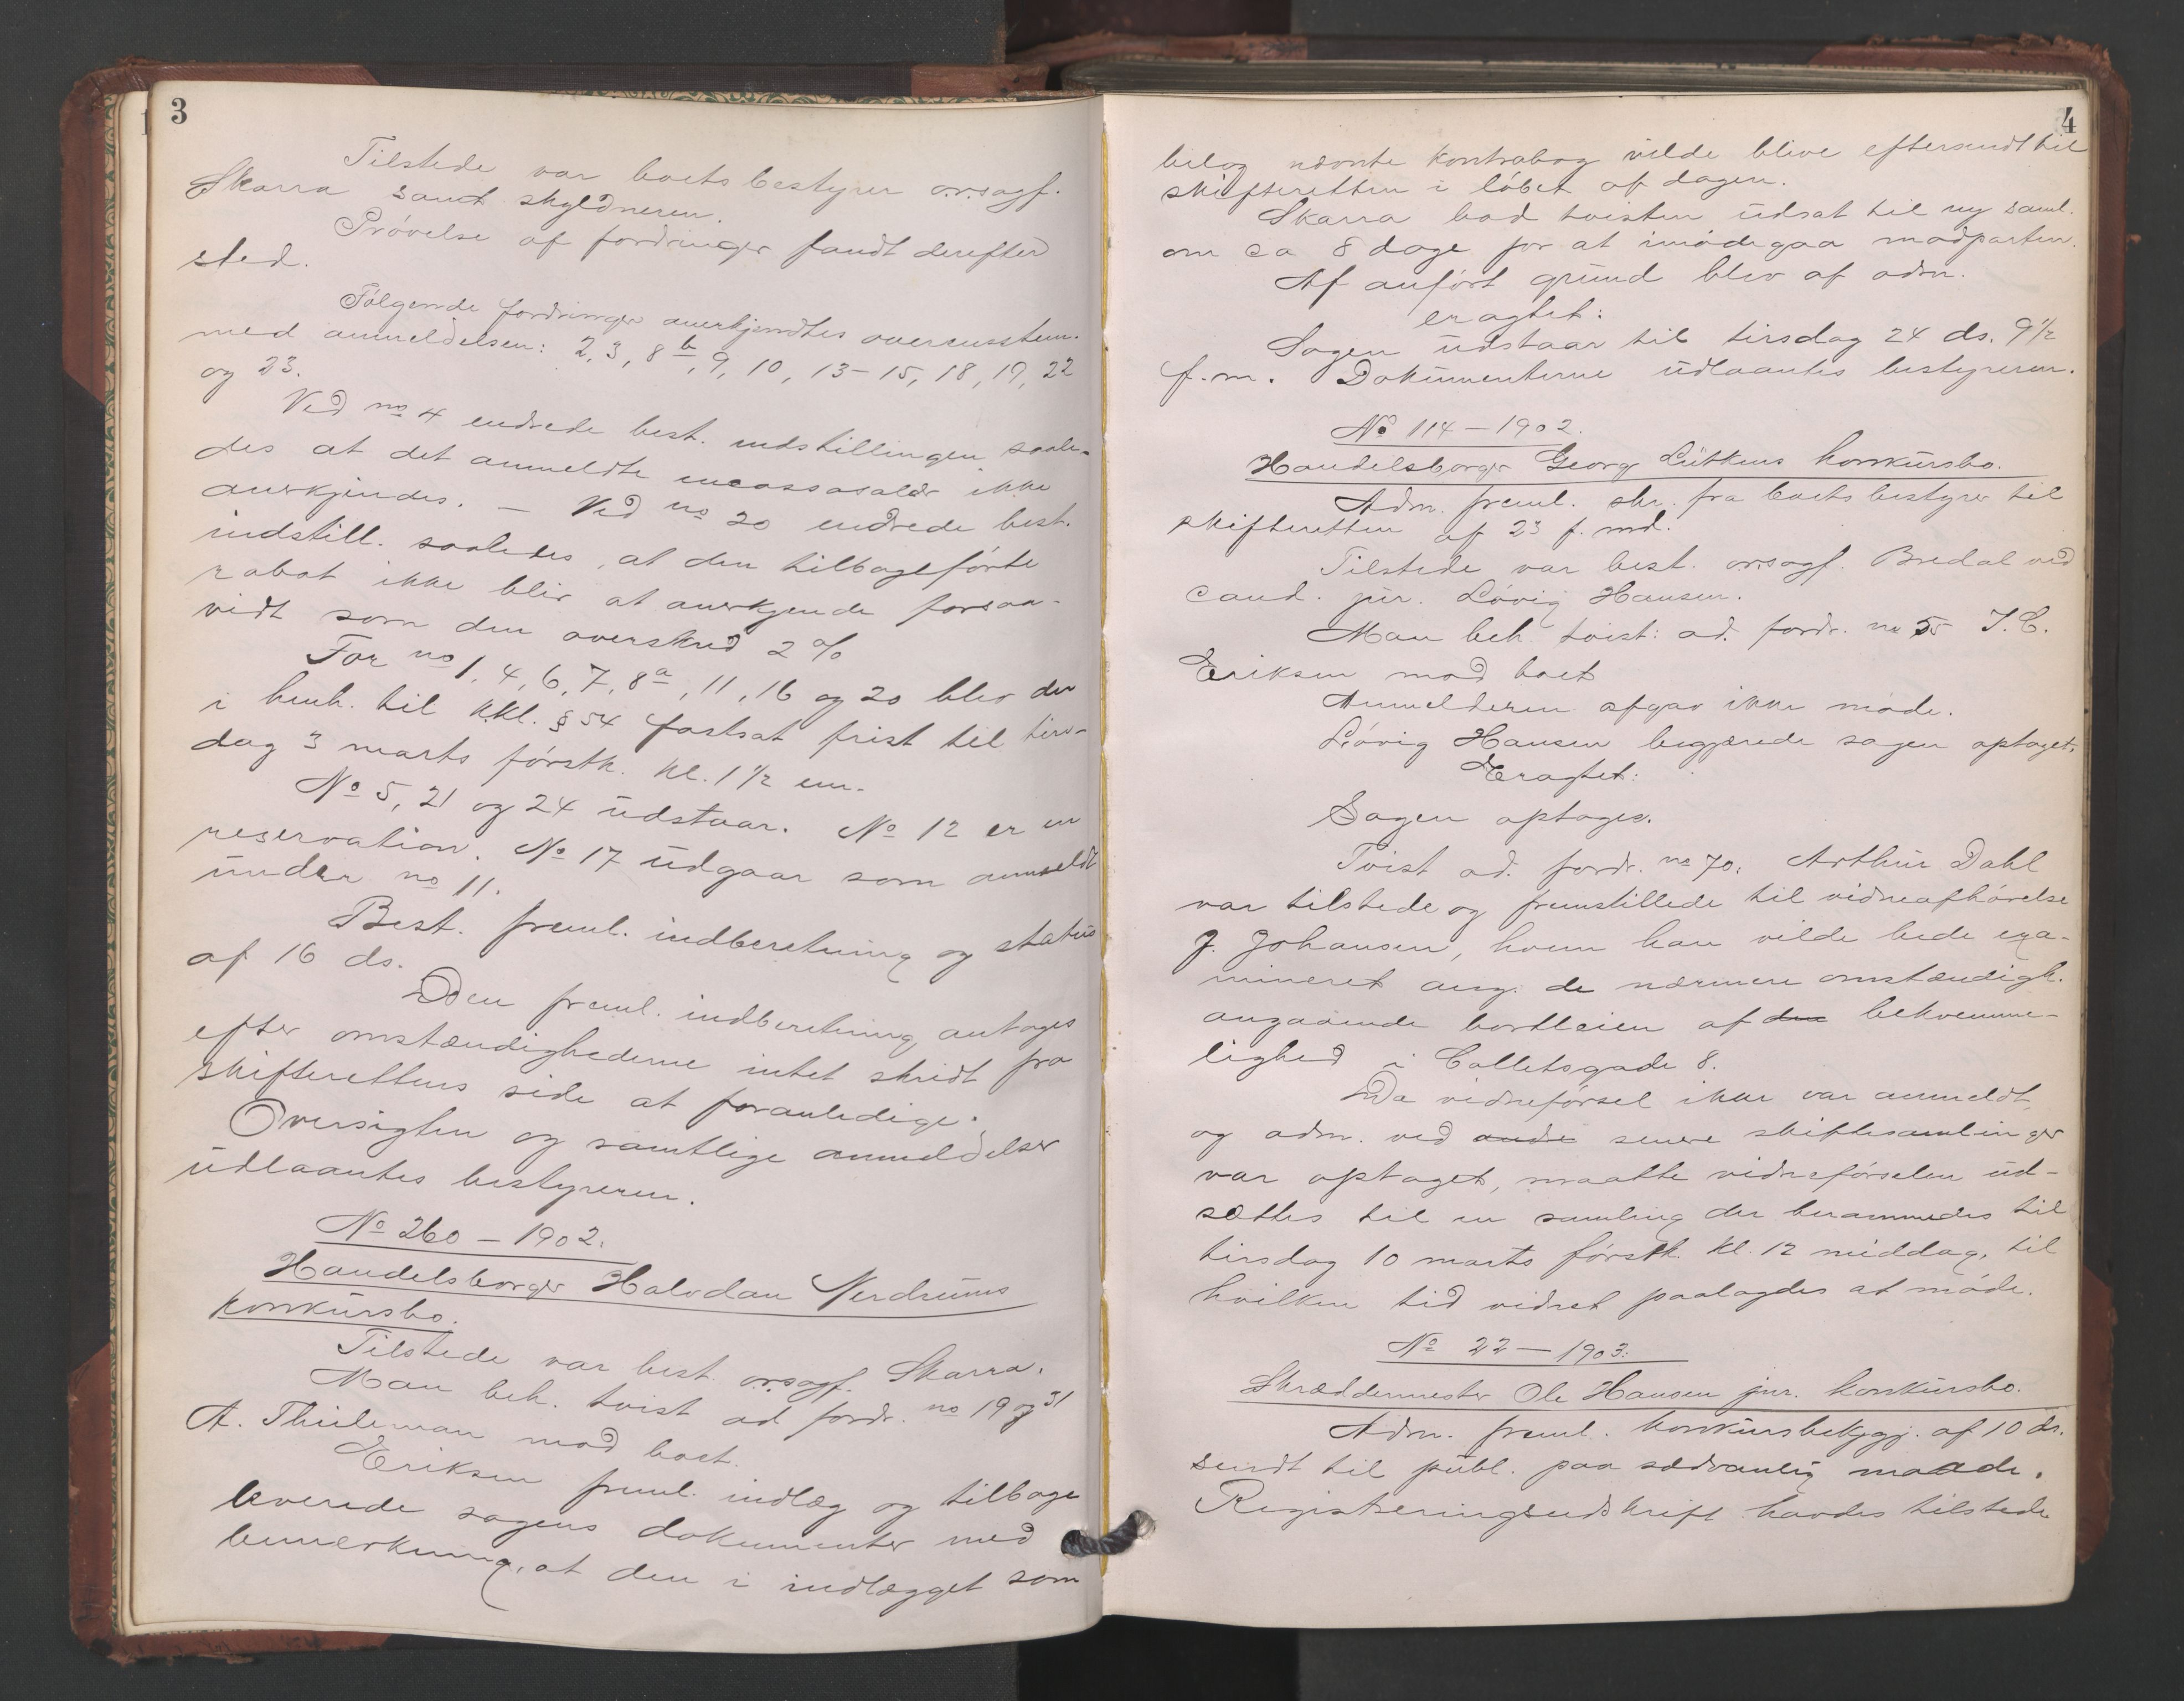 3
Tilstede var boets bestyrer orsagf.
Skarra samt skyldneren.
Prövelse af fordringer fandt derefter
sted.
Følgende fordringer anerkjendtes overensstem.
med anmeldelsen: 2, 3, 8 b, 9, 10, 13-15, 18, 19, 22
og 23.
Ved no 4 endrede best. indstillingen saale-
des at det anmeldte incassosalær ikke
anerkjendes. - Ved no 20 endrede best.
indstill. saaledes, at den tilbageförte
rabat ikke blir at anerkjende forsaa-
vidt som den overskred 2 %
For no 1, 4, 6, 7, 8 a, 11, 16 og 20 blev der
i henh. til kkl. § 54 fastsat frist til tirs-
dag 3 marts förstk. kl. 1 1/2 em.
No 5, 21 og 24 udstaar. No 12 er en
reservation. No 17 udgaar som anmeldt
under no 11.
Best. freml. indberetning og status
af 16 ds.
Den freml. indberetning antages
efter omstændighederne intet skridt fra
skifterettens side at foranledige.
Oversigten og samtlige anmeldelser
udlaantes bestyreren.
No 260 - 1902.
Handelsborger Halvdan Nerdrums
konkursbo.
Tilstede var best. orsagf. Skarra.
Man beh. tvist ad fordr. no 19 og 31
A. Thileman mod boet.
Eriksen freml. indlæg og tilbage
leverede sagens dokumenter med
bemerkning, at den i indlægget som
4
bilag nævnte kontrabog vilde blive eftersendt til
skifteretten i löbet af dagen.
Skarra bad tvisten udsat til ny saml.
om ca 8 dage for at imödegaa modparten.
Af anfört grund blev af adm.
eragtet:
Sagen udstaar til tirsdag 24 ds. 9 1/2
f.m. Dokumenterne udlaantes bestyreren.
No 114 - 1902.
Handelsborger Georg Lütkens konkursbo.
Adm. freml. skr. fra boets bestyrer til
skifteretten af 23 f. md.
Tilstede var best. orsagf. Bredal ved
cand. jur. Lövig Hansen.
Man beh. tvist: ad. fordr. no 55 J. C.
Eriksen mod boet
Anmelderen afgav ikke möde.
Lövig Hansen begjærede sagen optaget.
Eragtet:
Sagen optages.
Tvist ad. fordr. no 70. Arthur Dahl
var tilstede og fremstillede til vidneafhörelse
J. Johansen, hvem han vilde bede exa-
mineret ang. de nærmere omstændigh.
angaaende bortleien af den bekvemme-
lighed i Colletsgade 8.
Da vidneförsel ikke var anmeldt,
og adm. ved andre senere skiftesamlinger
var optaget, maatte vidneförselen ud-
sættes til en samling der berammedes til
tirsdag 10 marts förstk. kl. 12 middag, til
hvilken tid vidnet paalagdes at möde.
No 22 - 1903.
Skræddermester Ole Hansen jnr. konkursbo.
Adm. freml. konkursbekjgj. af 10 ds.
sendt til publ. paa sædvanlig maade.
Registreringsudskrift havdes tilstede